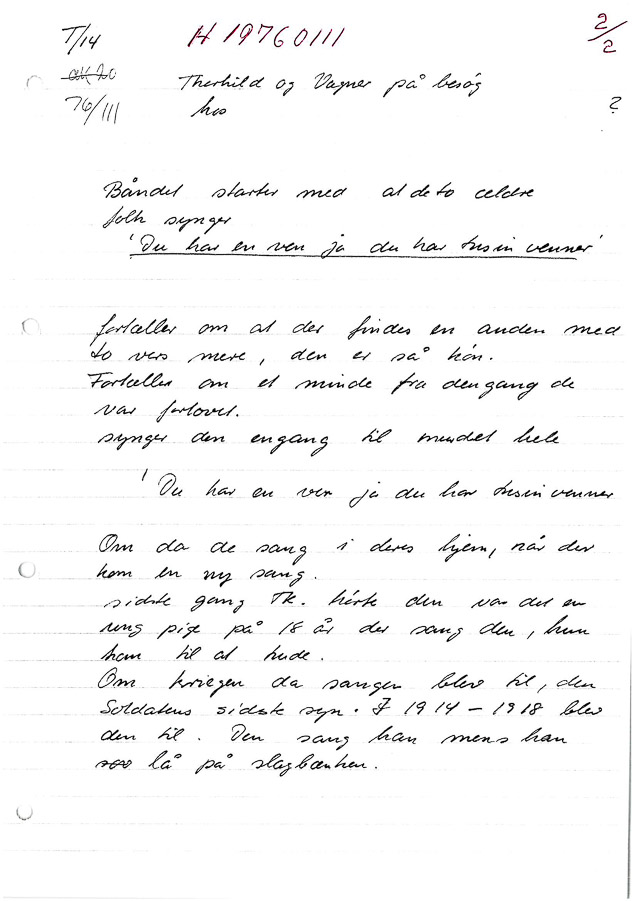 T/14 H 19760111 2/2
ak 20 Therhild og Vagner på besøg
76/111 hos ?
Båndet starter med at de to ældre
folk synger
'Du har en ven ja du har tusin venner'
fortæller om at der findes en anden med
to vers mere, den er så kön.
Fortæller om et minde fra dengang de
var forlovet.
synger den engang til mundet hele
'Du har en ven ja du har tusin venner
Om da de sang i deres hjem, når der
kom en ny sang.
sidste gang TK. hørte den var det en
ung pige på 18 år der sang den, hun
kom til at tude.
Om kriegen da sangen blev til, den
Soldatens sidste syn. I 1914 - 1918 blev
den til. Den sang han mens han
sov lå på slagbænken.